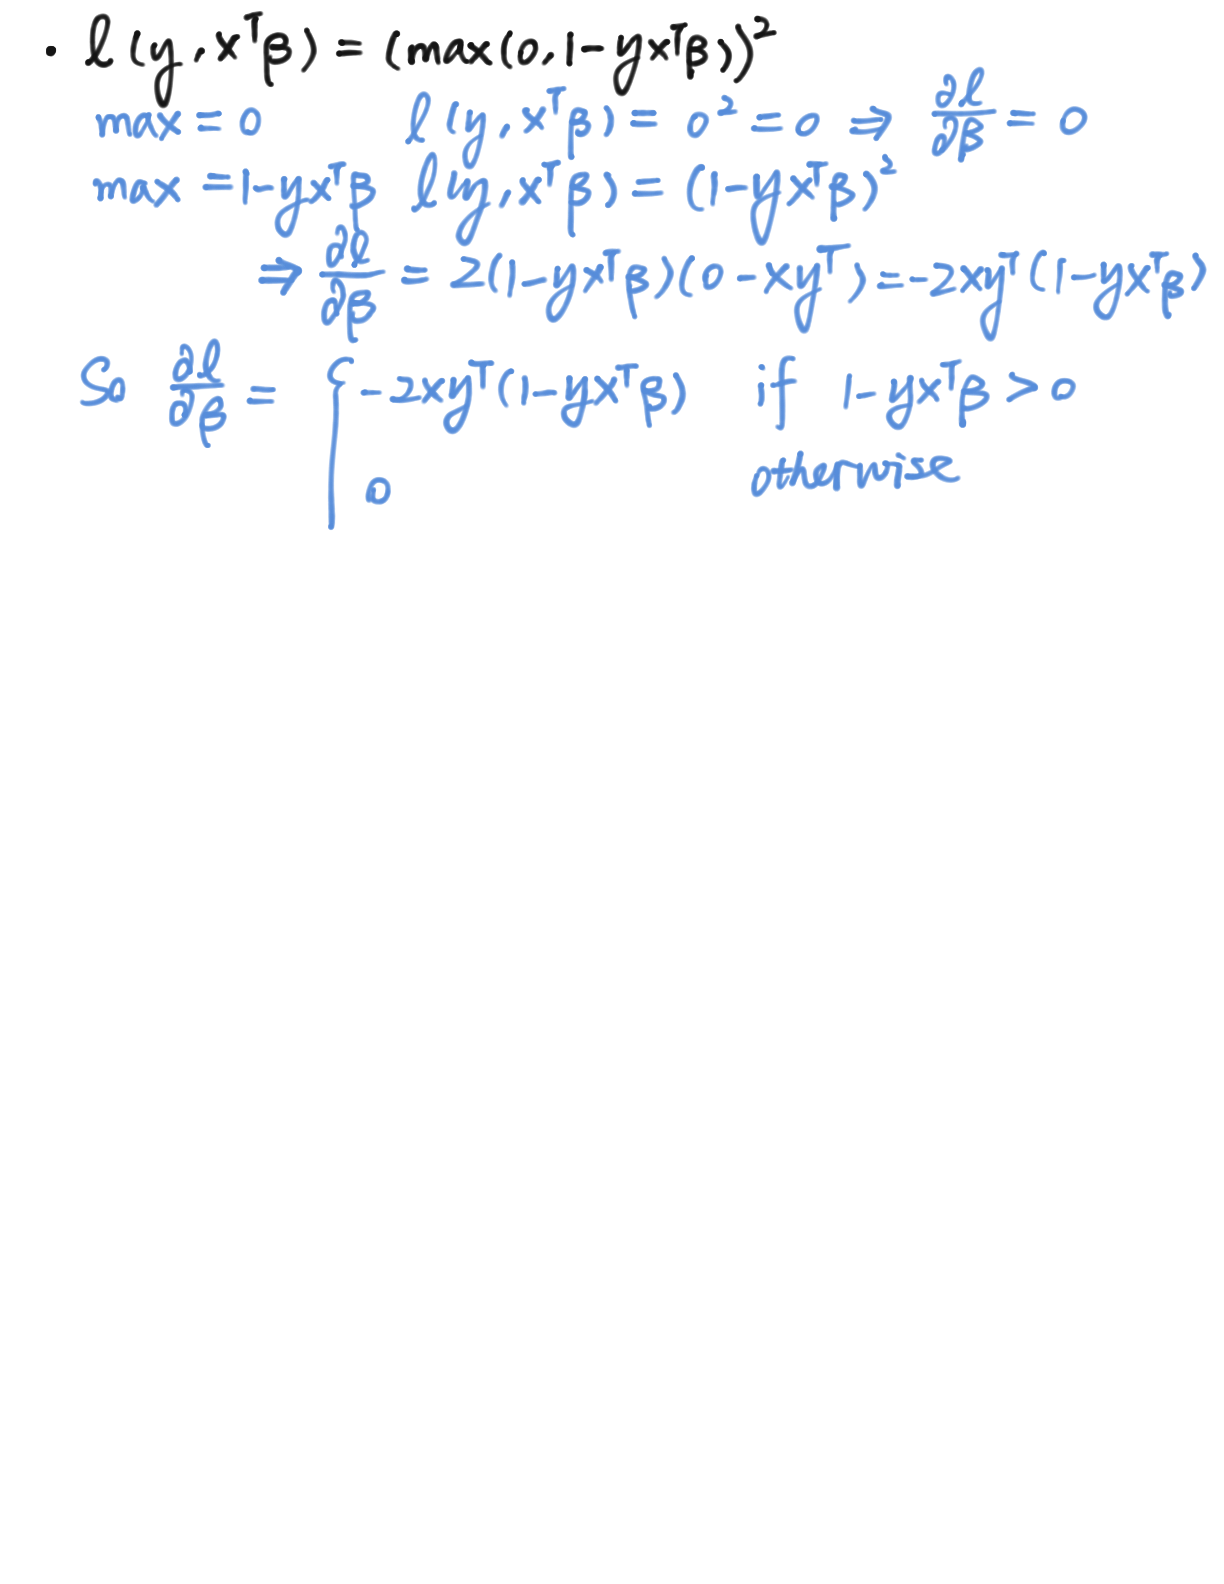 · ℓ(y, xᵀβ) = (max(0, 1-yxᵀβ))²
max = 0 ℓ(y, xᵀβ) = 0² = 0 ⇒ ∂ℓ/∂β = 0
max = 1-yxᵀβ ℓ(y, xᵀβ) = (1-yxᵀβ)²
⇒ ∂ℓ/∂β = 2(1-yxᵀβ)(0-xyᵀ) = -2xyᵀ(1-yxᵀβ)
So ∂ℓ/∂β = { -2xyᵀ(1-yxᵀβ) if 1-yxᵀβ > 0
0 otherwise